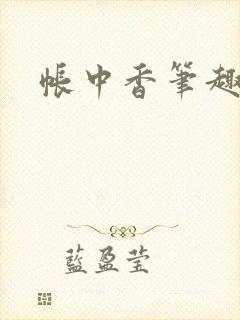 帳中香筆趣
藍盈莹